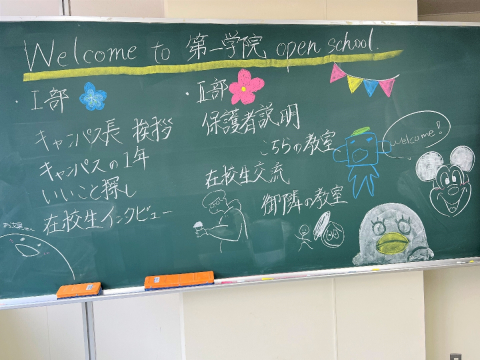 Welcome to 第一学院 open school.
・Ⅰ部
キャンパス長 挨拶
キャンパスの1年
いいこと探し
在校生インタビュー
・Ⅱ部
保護者説明
こちらの教室
在校生交流
御隣の教室
welcome!